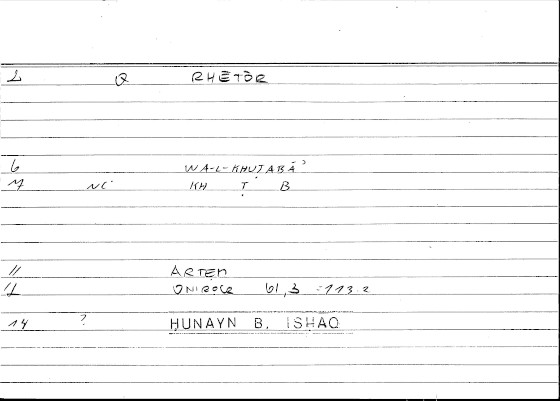 2 Q RHĒTŌR
6 WA-L-KHUṬABĀʾ
7 NC KH Ṭ B
11 ARTEM
12 ONIROCR 61,3 =113.2
14 ? HUNAYN B. ISHAQ